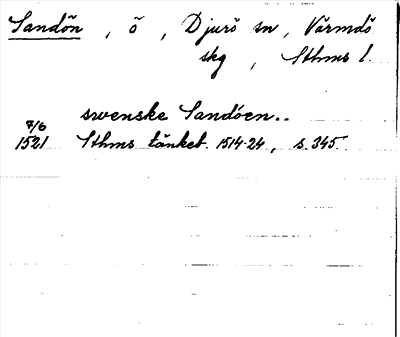 Sandön, ö, Djurö sn, Värmdö
skg, Sthms l.
swenske Sandöen..
7/6
1521 Sthms tänkeb. 1514-24, s. 345.